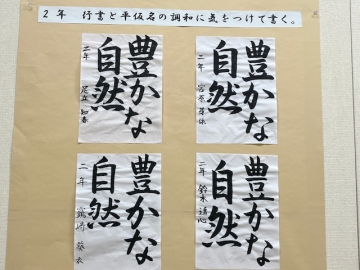 2年 行書と平仮名の調和に気をつけて書く。
豊かな
自然
二年
豊かな
自然
二年
豊かな
自然
二年 鈴木
豊かな
自然
二年